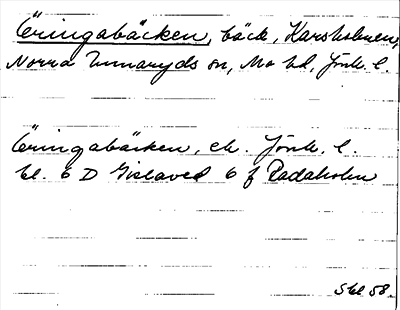 Öringabäcken, bäck, Karsholmen,
Norra Unnaryds sn, Mo hd, Jönk. l.
Öringabäcken, ek. Jönk. l.
bl. 6 D Gislaved 6 f Radaholm
Skl 58.